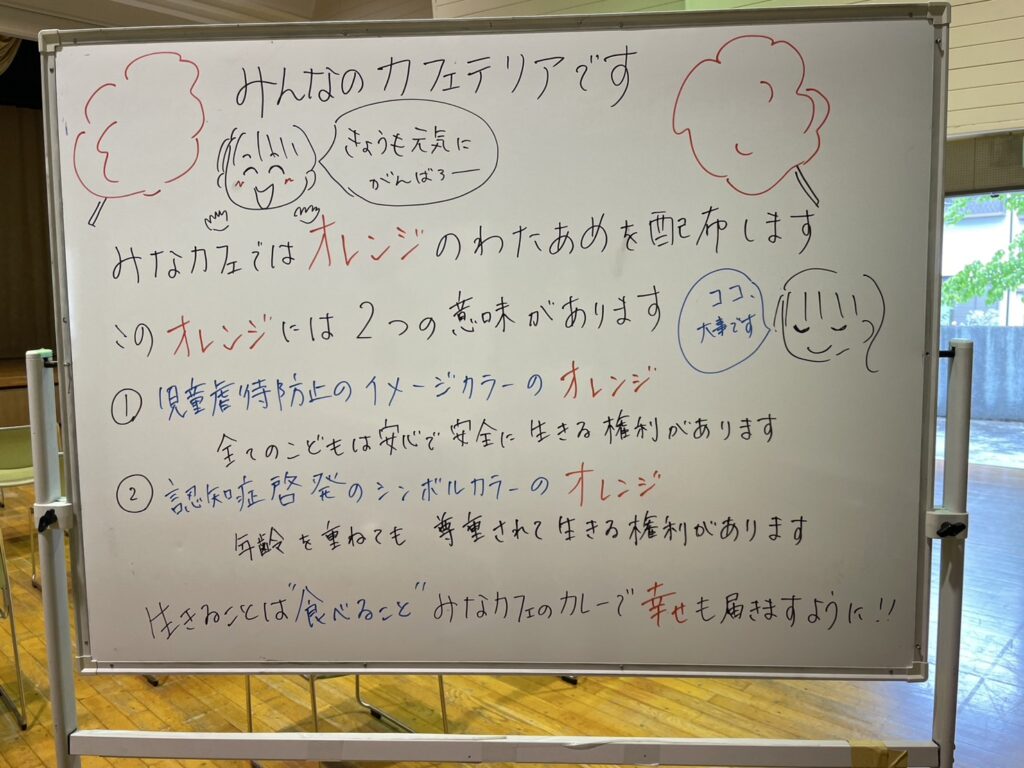 みんなのカフェテリアです
きょうも元気に
がんばろー
みなカフェではオレンジのわたあめを配布します
このオレンジには2つの意味があります
ココ、
大事です
① 児童虐待防止のイメージカラーの オレンジ
全てのこどもは安心で安全に生きる権利があります
② 認知症啓発のシンボルカラーの オレンジ
年齢を重ねても 尊重されて生きる権利があります
生きることは"食べること"みなカフェのカレーで幸せも届きますように!!